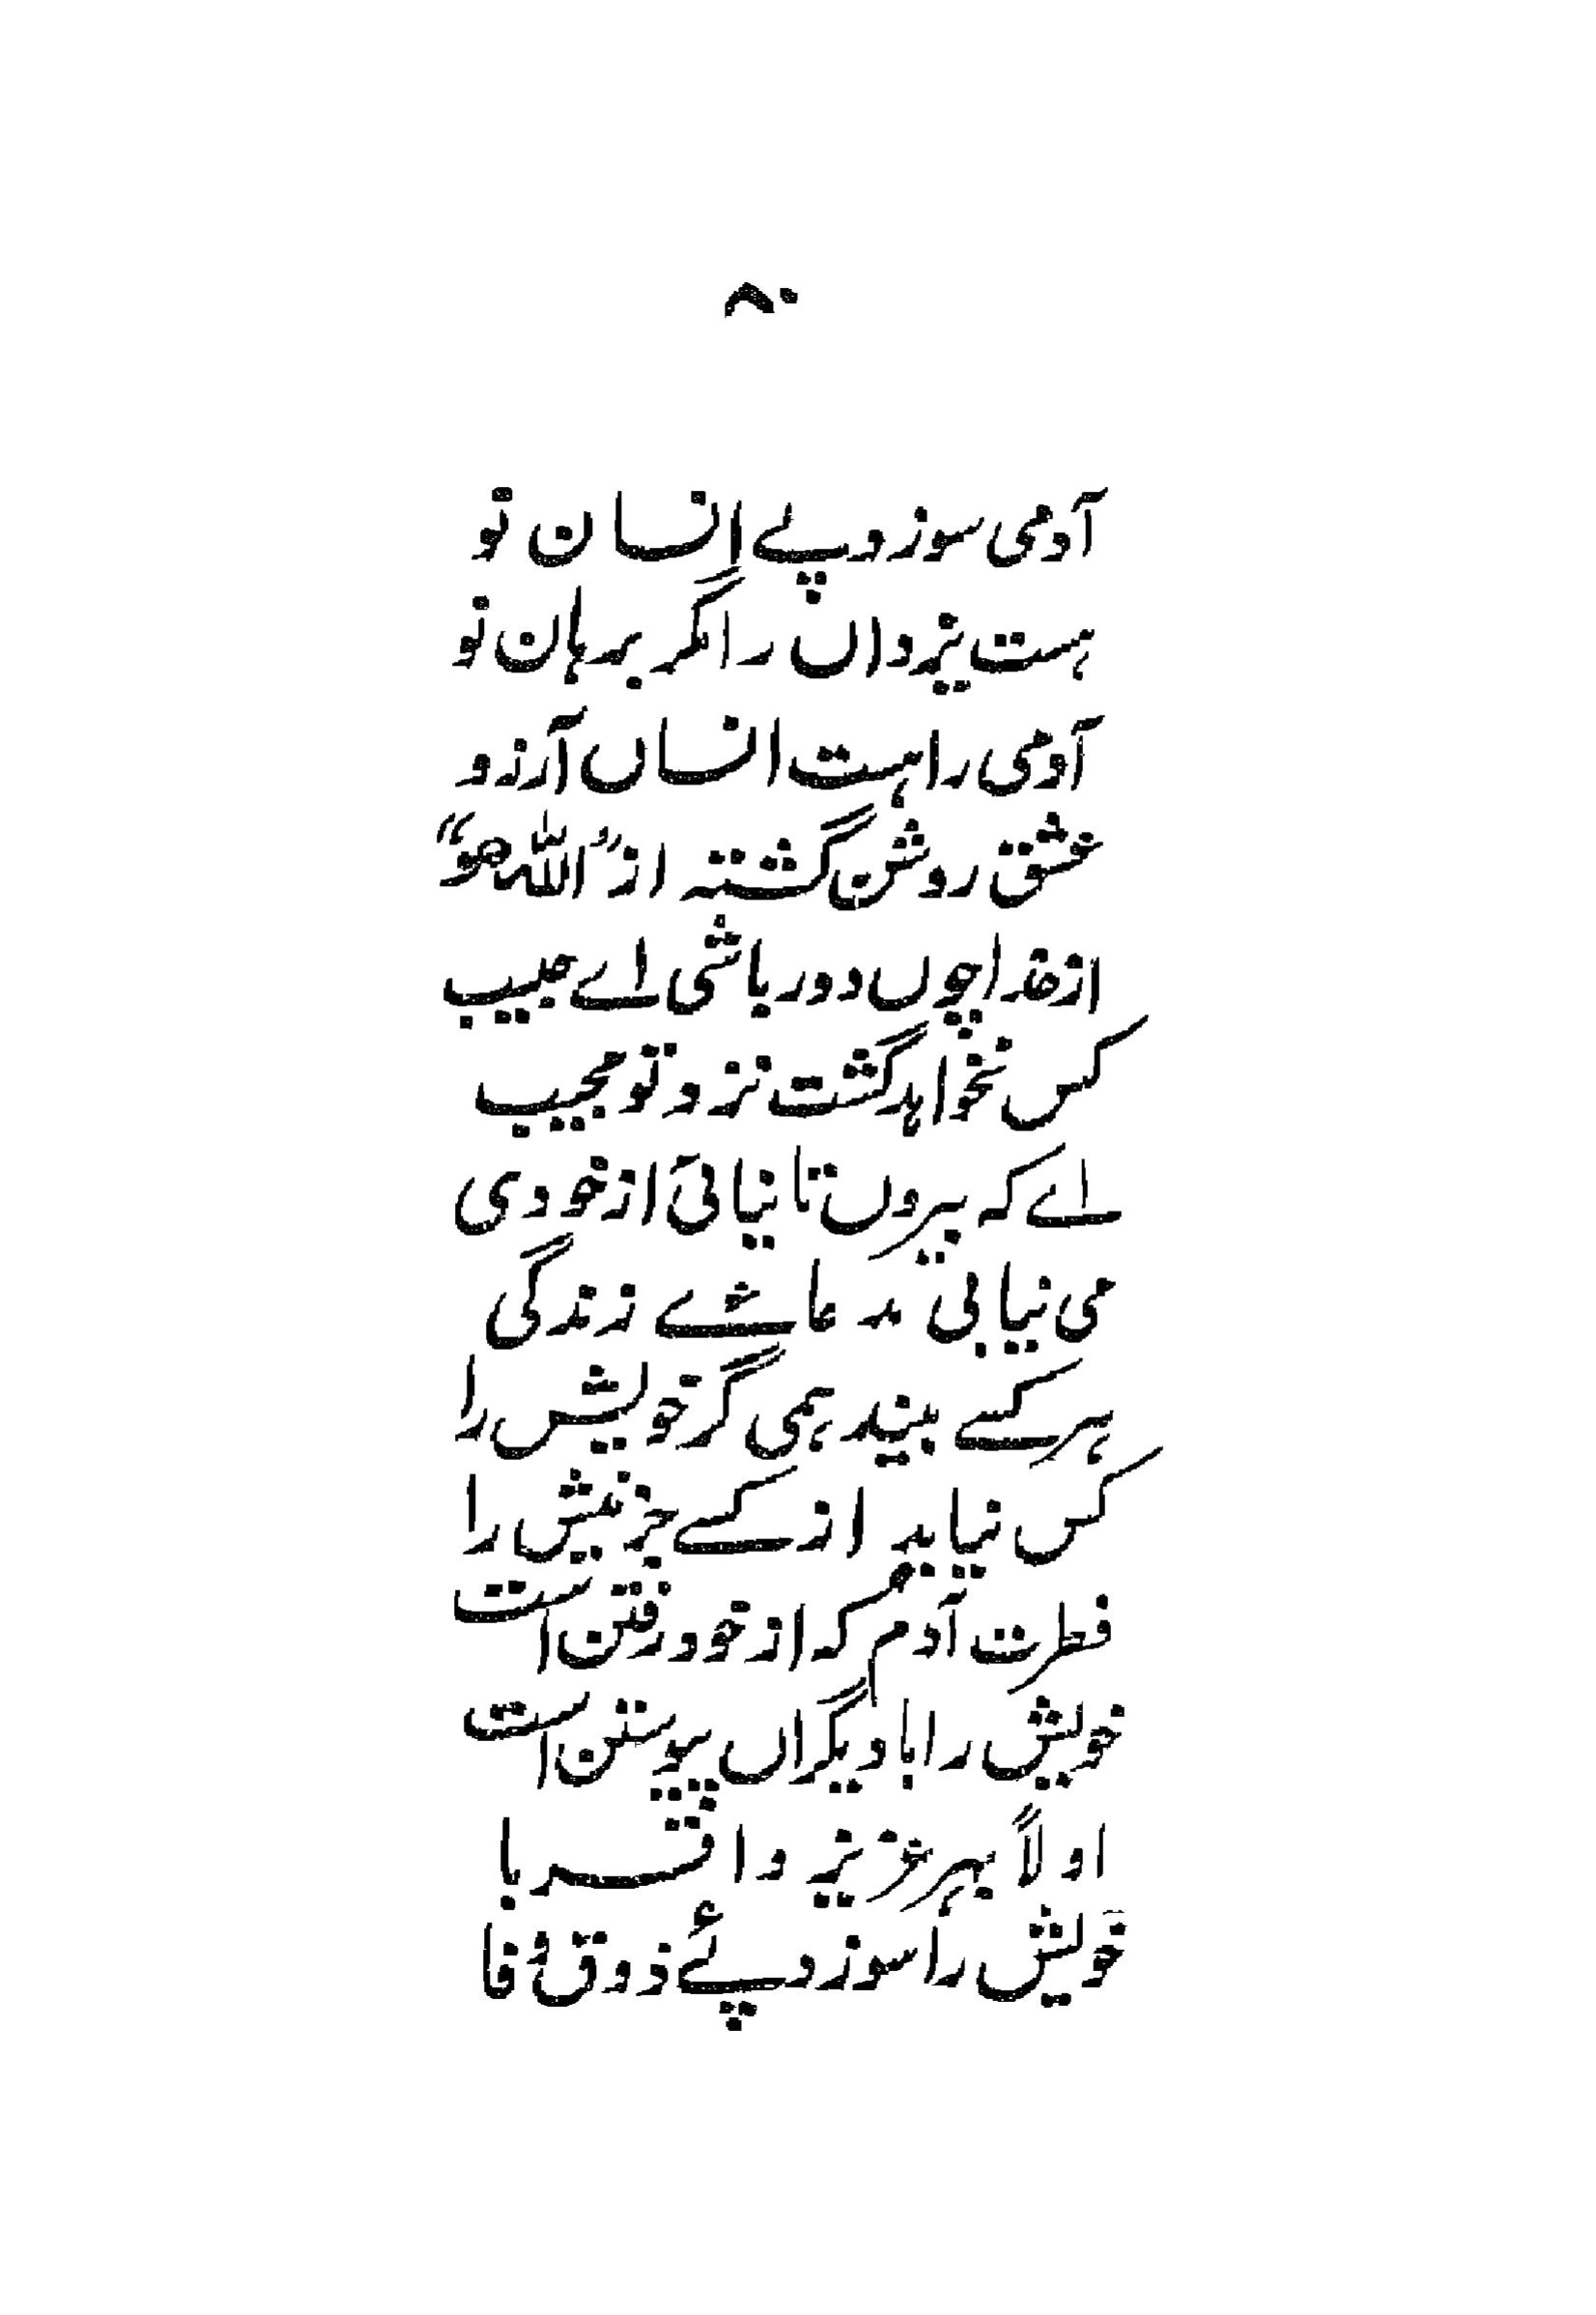 ۸۰
آدمی سوزد پے انسان تو
ہست یزداں را مگر برہان تو
آدمی را ہست انساں آرزو
عشق روشن گشتہ از "اللہ ھو"
از خدا چوں دور باشی اے حبیب
کس نخواہد گشت نزد تو مجیب
اے کہ بیروں تا نیائی از خودی
می نیابی مدعائے زندگی
ہر کسے بیند ہمی گر خویش را
کس نیابد از کسے جز نیش را
فطرت آدم کہ از خود رفتن است
خویش را با دیگراں پیوستن است
اولاً بہر عزیز و اقربا
خویش را سوزد پئے ذوق وفا